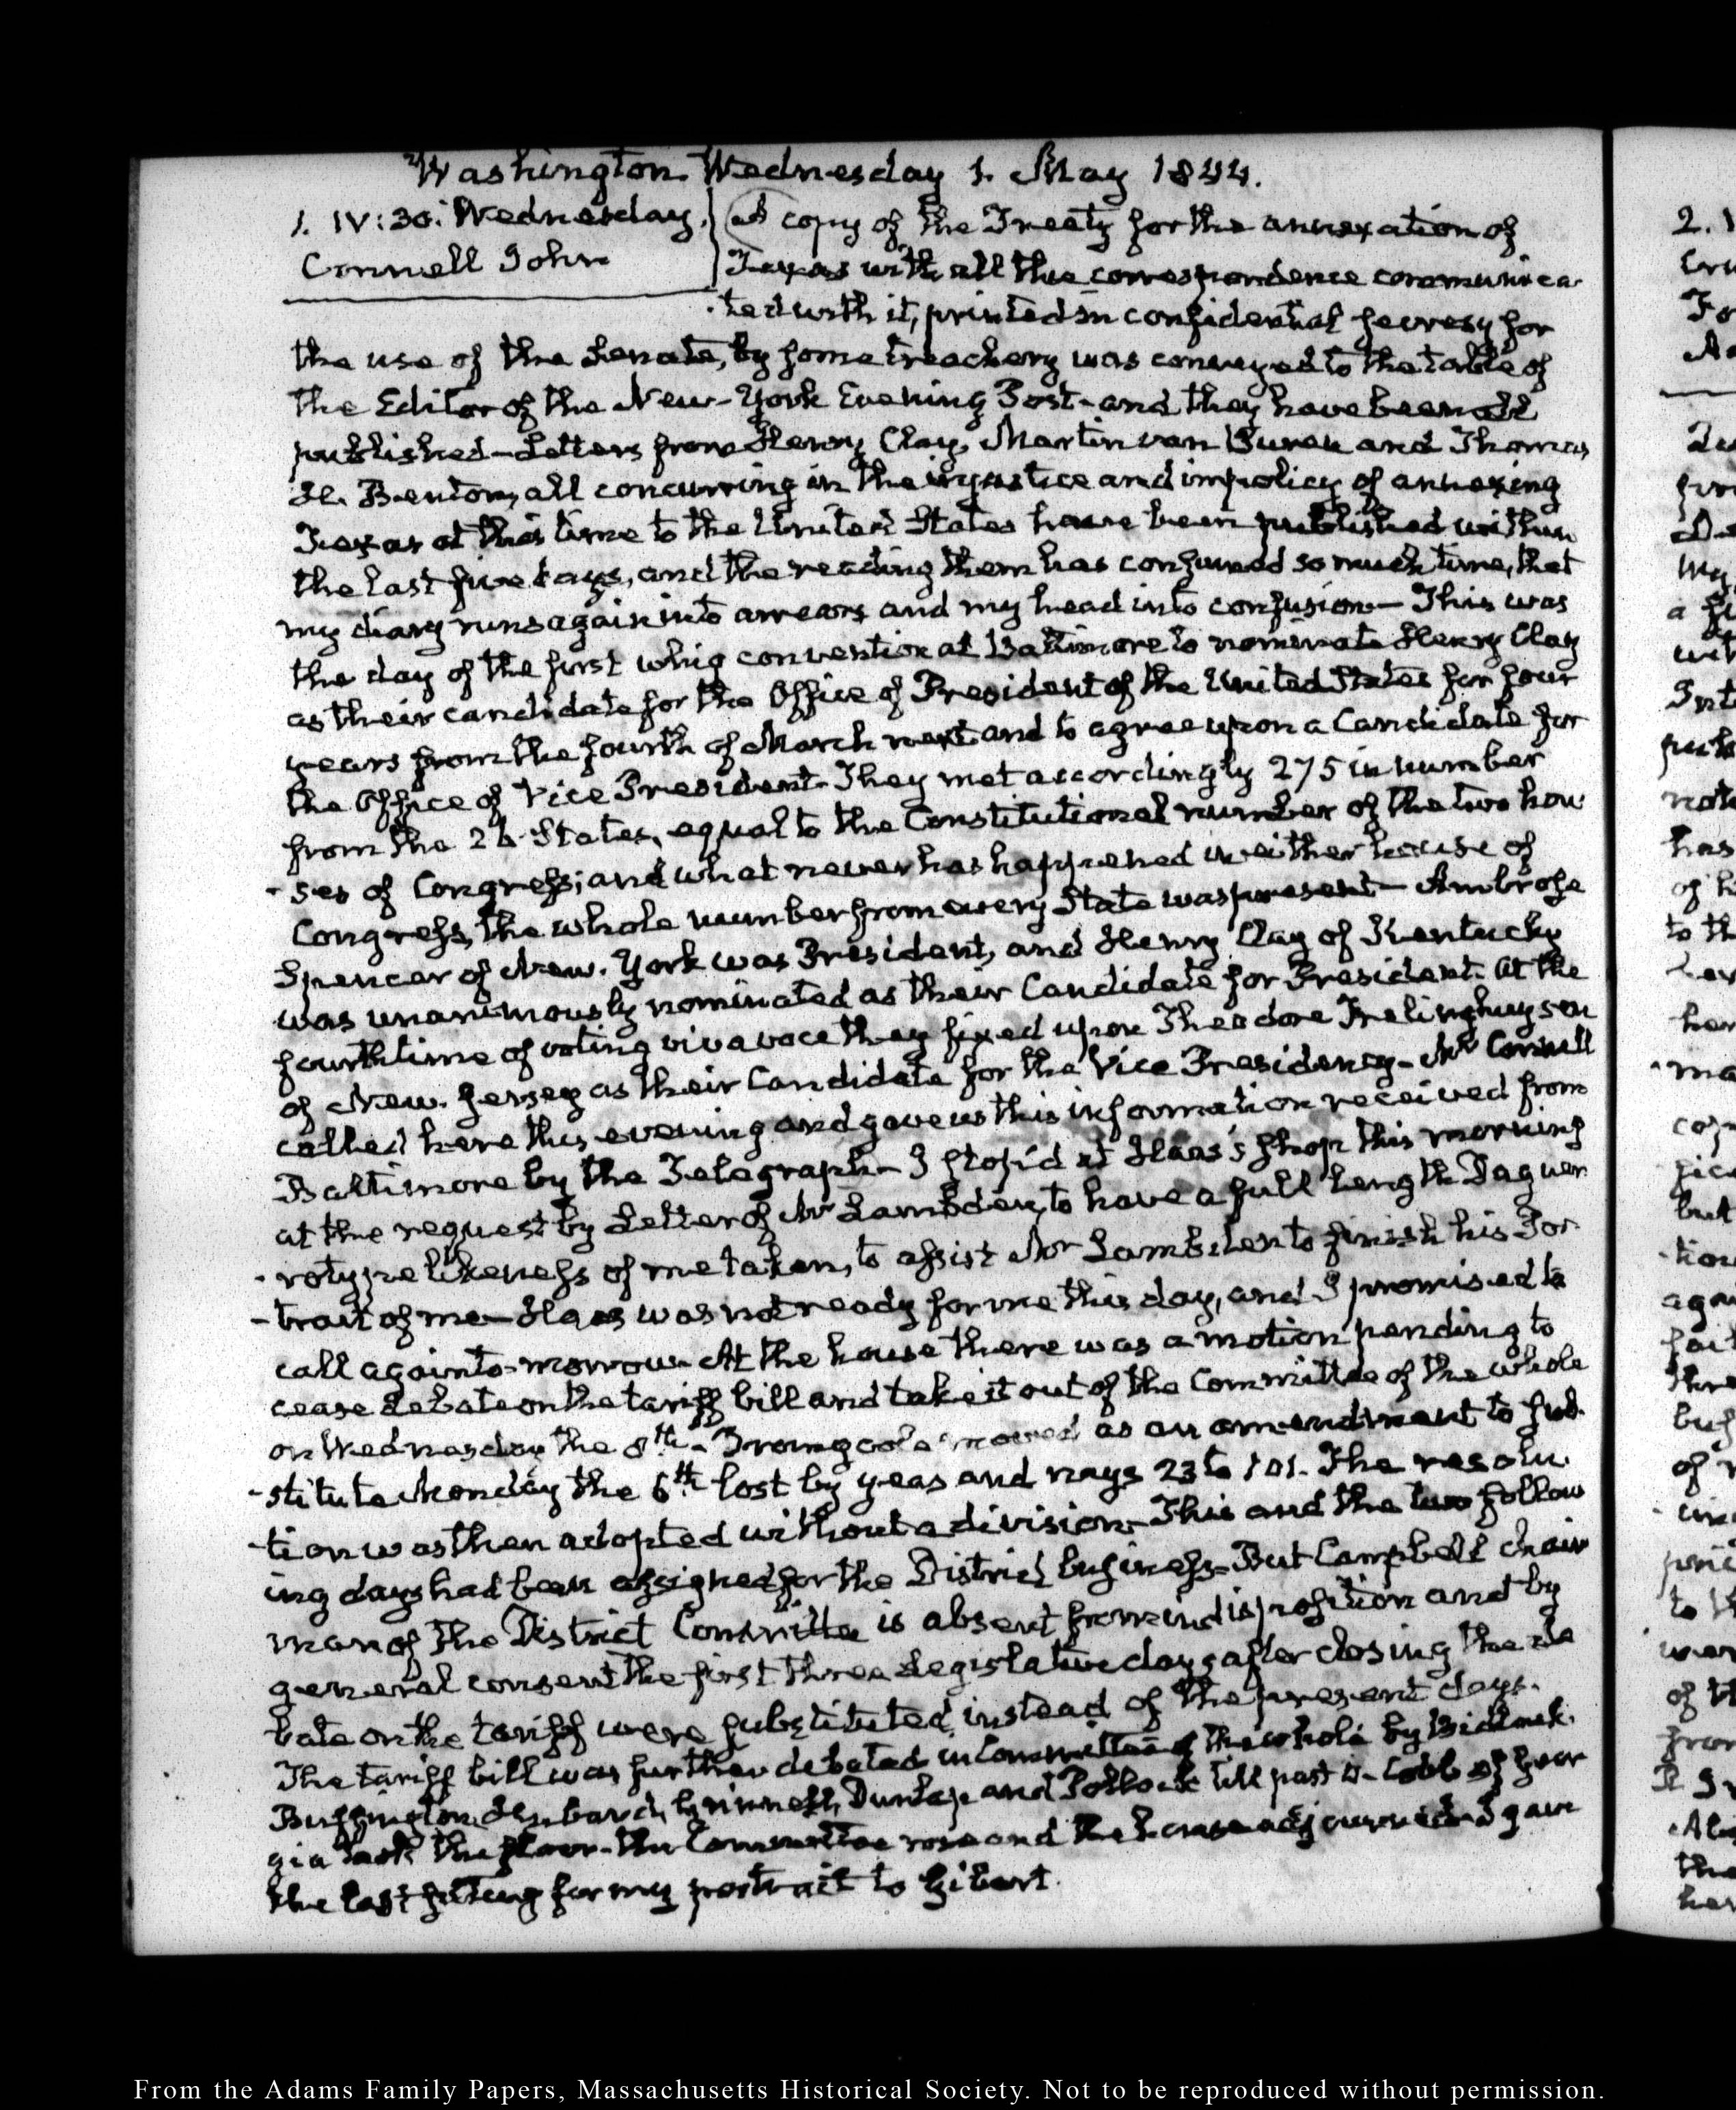 Washington. Wednesday 1. May 1844.
1. IV:30. Wednesday.
Connell John
A copy of the Treaty for the annexation of
Texas with all the correspondence communica-
-ted with it, printed in confidential secresy for
the use of the Senate, by some treachery was conveyed to the table of
the Editor of the New-York Evening Post - and they have been all
published - Letters from Henry Clay, Martin van Buren and Thomas
H. Benton, all concurring in the injustice and impolicy of annexing
Texas at this time to the United States have been published within
the last five days, and the reading them has consumed so much time, that
my diary runs again into arrears and my head into confusion - This was
the day of the first whig convention at Baltimore to nominate Henry Clay
as their candidate for the Office of President of the United States for four
years from the fourth of March next and to agree upon a Candidate for
the Office of Vice President. They met accordingly 275 in number
from the 26 States, equal to the Constitutional number of the two hou
-ses of Congress; and what never has happened in either house of
Congress, the whole number from every State was present - Ambrose
Spencer of New-York was President, and Henry Clay of Kentucky
was unanimously nominated as their Candidate for President. At the
fourth time of voting viva voce they fixed upon Theodore Frelinghuysen
of New-Jersey as their Candidate for the Vice Presidency - Mr Connell
called here this evening and gave us this information received from
Baltimore by the Telegraph - I stop'd at Haas's shop this morning
at the request by Letter of Mr Lambden, to have a full length Daguer
-rotype likeness of me taken, to assist Mr Lambden to finish his Por-
-trait of me - Haas was not ready for me this day, and I promised to
call again to-morrow. At the house there was a motion pending to
cease debate on the tariff bill and take it out of the Committee of the whole
on Wednesday the 8th - Bromgoole moved as an amendment to sub-
-stitute Monday the 6th lost by yeas and nays 23 to 101. The resolu-
-tion was then adopted without a division - This and the two follow
ing days had been assigned for the District business - But Campbell chair
man of the District Committee is absent from indisposition and by
general consent the first three Legislative days after closing the de
bate on the tariff were substituted, instead of the present days.
The tariff bill was further debated in Committee of the whole by Bidlack.
Buffington, Grinnell, Dunlap and Pollock till past - Cobb of Geor
gia took the floor - the Committee rose and the house adjourned - I gave
the last sitting for my portrait to Gibert.
2.
From the Adams Family Papers, Massachusetts Historical Society. Not to be reproduced without permission.